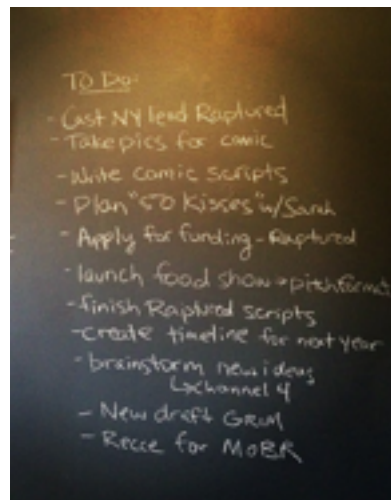 TO Do:
- Cast NY lead Raptured
- Take pics for comic
- Write comic scripts
- Plan "50 Kisses" w/Sarah
- Apply for funding - Raptured
- launch food show → pitch format
- finish Raptured scripts
- create timeline for next year
- brainstorm new ideas
↳ channel 4
- New draft GRIM
- Recce for MOBR